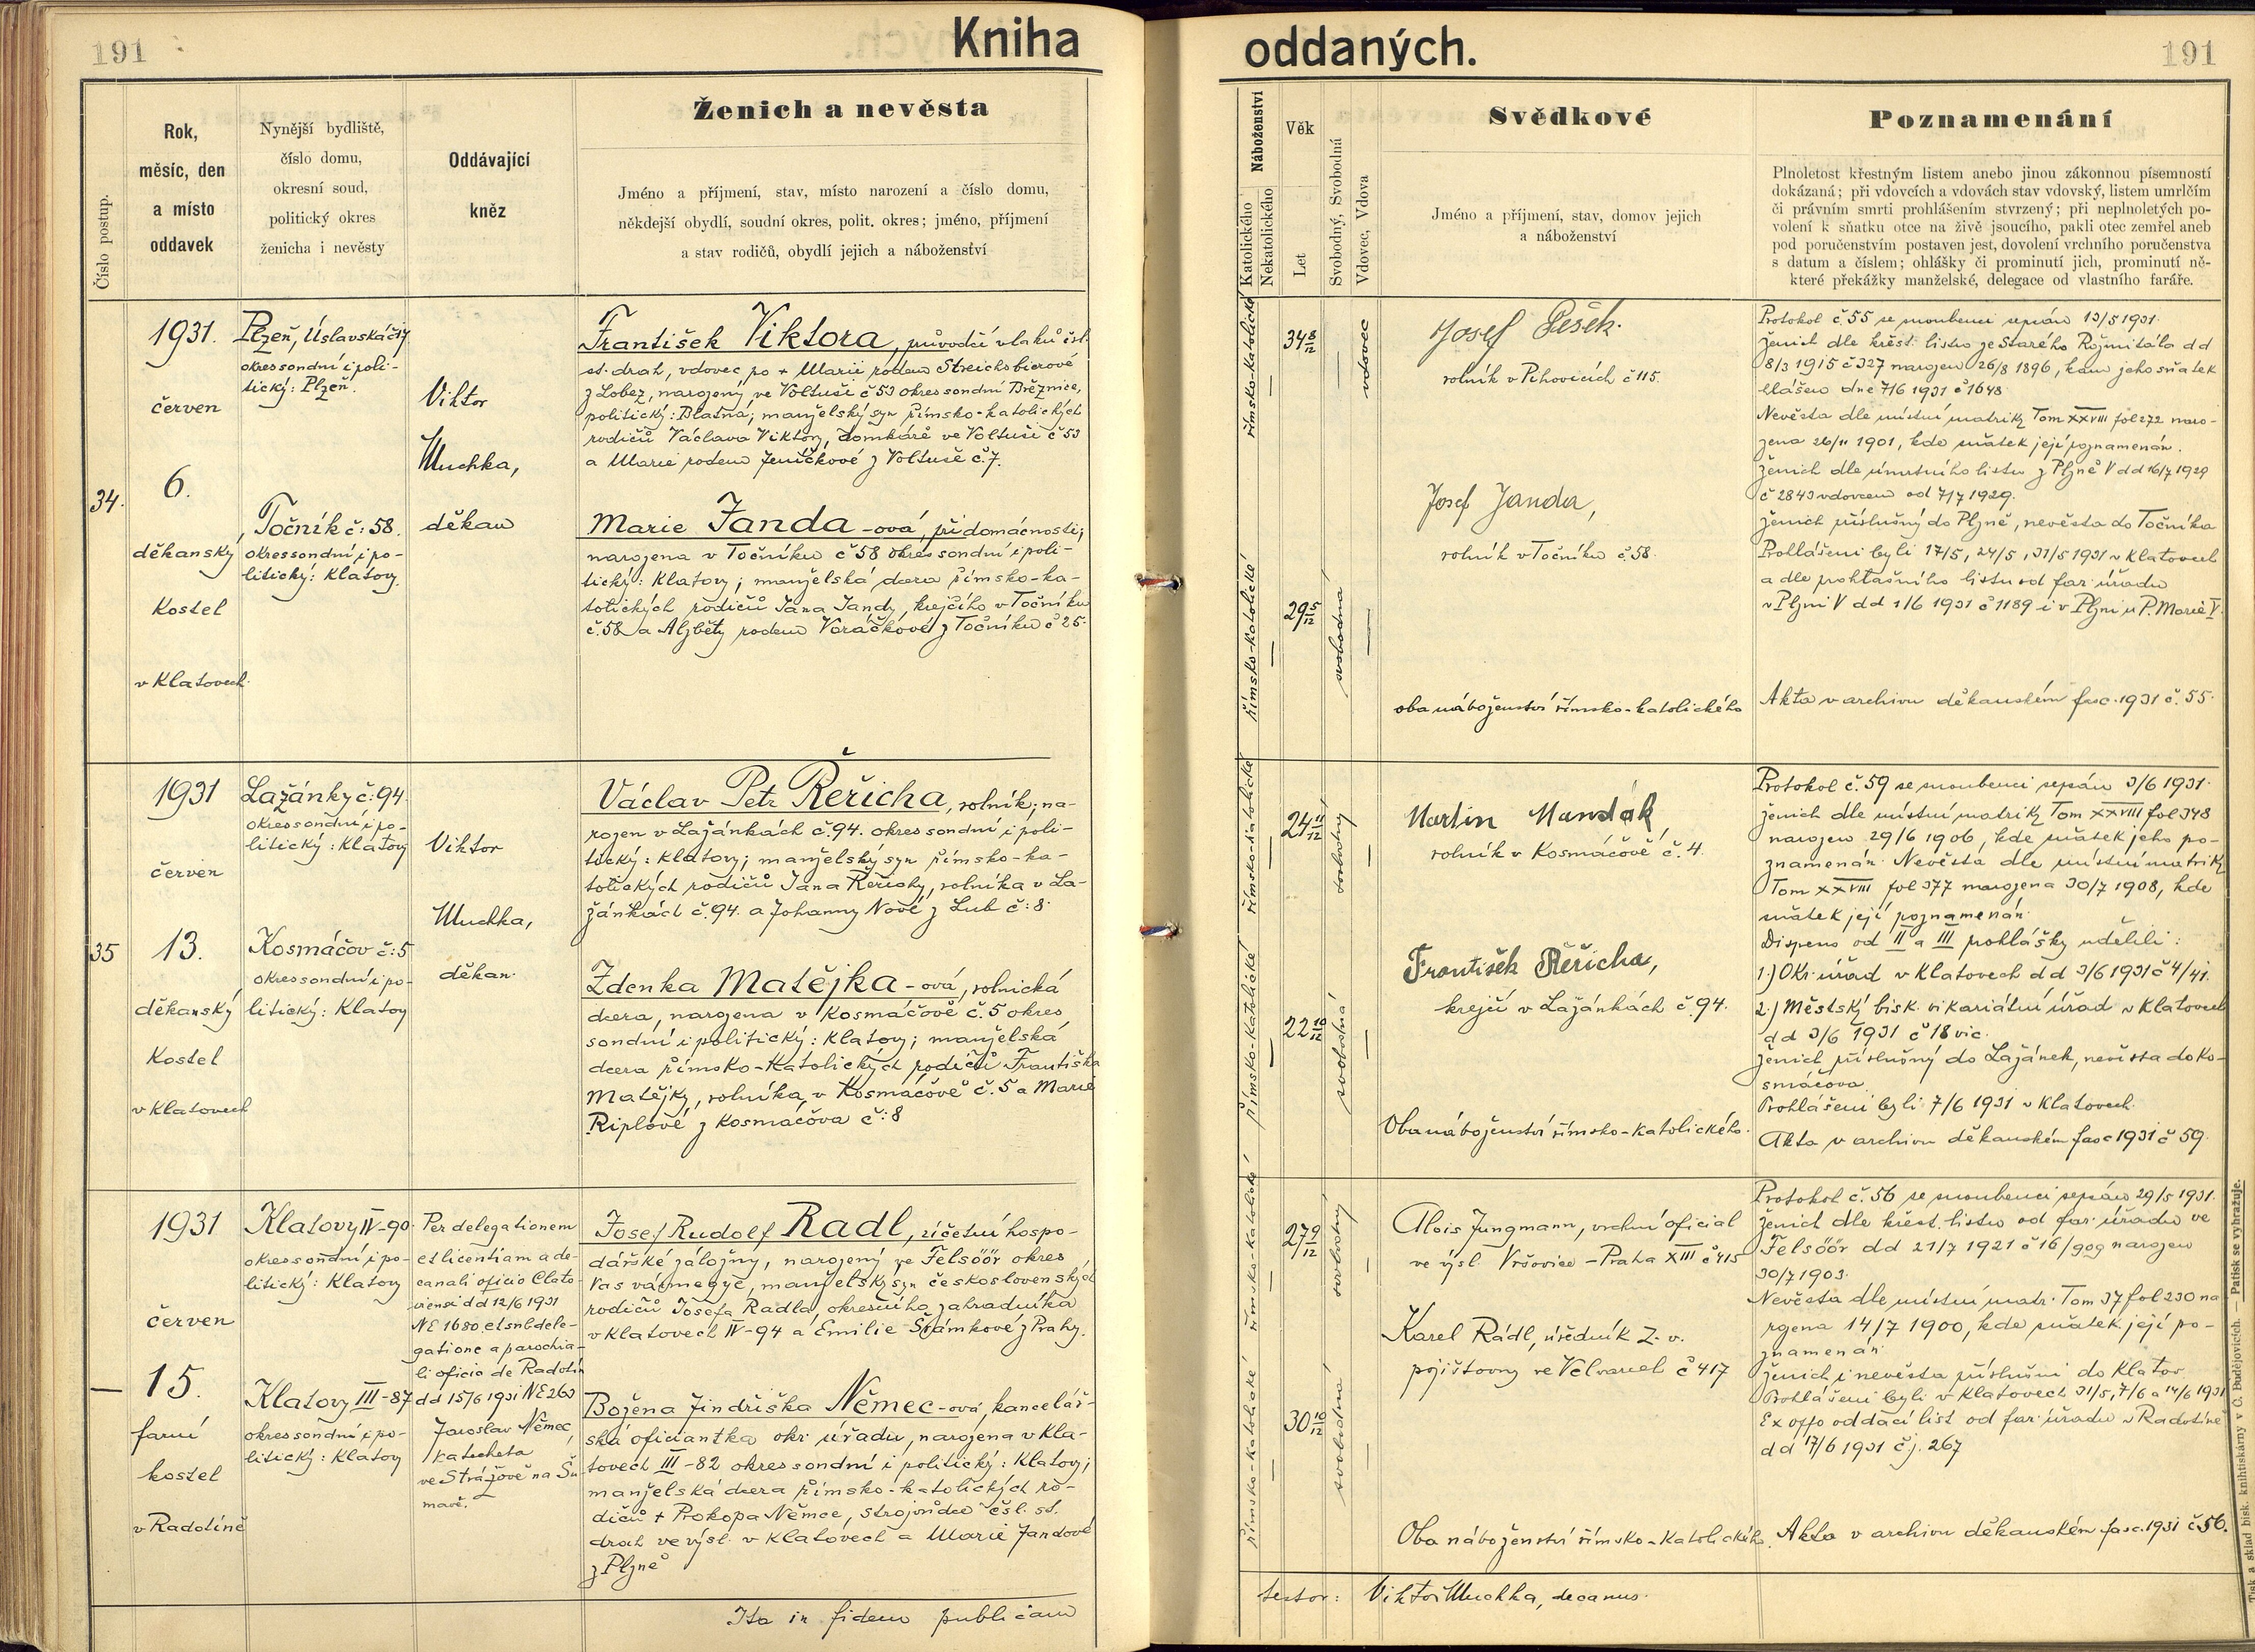 191
Kniha
Číslo postup.
Rok,
měsíc, den
a místo
oddavek
Nynější bydliště,
číslo domu,
okresní soud,
politický okres
ženicha i nevěsty
Oddávající
kněz
Ženich a nevěsta
Jméno a příjmení, stav, místo narození a číslo domu,
někdejší obydlí, soudní okres, polit. okres; jméno, příjmení
a stav rodičů, obydlí jejich a náboženství
34.
1931.
červen
6.
děkanský
Kostel
v Klatovech
Plzeň, Úslavská
okres soudní i poli-
tický: Plzeň.
Točník č: 58.
okres soudní i po-
litický: Klatovy.
Viktor
Muchka,
děkan
František Viktora, průvodčí vlaků čsl.
st. drah, vdovec po + Marii rodem Streichsbierové
z Lobez, narozený ve Voltuši č 53 okres soudní Březnice,
politický: Blatná; manželský syn římsko-katolických
rodičů Václava Viktory, domkáře ve Voltuši č 53
a Marie rodem Jeníčkové z Voltuše č. 7.
Marie Janda-ová, při domácnosti;
narozena v Točníku č 58 okres soudní i poli-
tický: Klatovy; manželská dcera římsko-ka-
tolických rodičů Jana Jandy, krejčího v Točníku
č. 58 a Alžběty rodem Voráčkové z Točníku č 25.
35
1931
červen
13.
děkanský
Kostel
v Klatovech
Lažánky č: 94.
okres soudní i po-
litický: Klatovy
Kosmáčov č: 5
okres soudní i po-
litický: Klatovy
Viktor
Muchka,
děkan.
Václav Petr Řeřicha, rolník; na-
rozen v Lažánkách č. 94. okres soudní i poli-
tický: Klatovy; manželský syn římsko-ka-
tolických rodičů Jana Řeřichy, rolníka v La-
žánkách č. 94. a Johanny Nové z Lub č: 8.
Zdenka Matějka-ová, rolnická
dcera, narozena v Kosmáčově č. 5 okres
soudní i politický: Klatovy; manželská
dcera římsko-katolických rodičů Františka
Matějky, rolníka v Kosmáčově č. 5 a Marie
Riplové z Kosmáčova č: 8
—
1931
červen
15.
farní
kostel
v Radotíně
Klatovy IV-90.
okres soudní i po-
litický: Klatovy
Klatovy III-87
okres soudní i po-
litický: Klatovy
Per delegationem
et licentiam a de-
canali oficio Clato-
viensi dd 12/6 1931
NE 1680 et subdele-
gatione a parochia-
li oficio de Radotín
dd 15/6 1931 NE 263
Jaroslav Němec,
katecheta
ve Strážově na Šu-
mavě.
Josef Rudolf Radl, účetní hospo-
dářské záložny, narozený ve Felsöör okres
Vas vármegye, manželský syn československých
rodičů Josefa Radla, okresního zahradníka
v Klatovech IV-94 a Emilie Šrámkové z Prahy.
Božena Jindřiška Němec-ová, kancelář-
ská oficiantka okr. úřadu, narozena v Kla-
tovech III-82 okres soudní i politický: Klatovy;
manželská dcera římsko-katolických ro-
dičů + Prokopa Němce, strojvůdce čsl. st.
drah ve výsl. v Klatovech a Marie Jandové
z Plzně
Ita in fidem publicam
oddaných.
191
Náboženství
Katolického
Nekatolického
Věk
Let
Svobodný, Svobodná
Vdovec, Vdova
Svědkové
Jméno a příjmení, stav, domov jejich
a náboženství
Poznamenání
Plnoletost křestným listem anebo jinou zákonnou písemností
dokázaná; při vdovcích a vdovách stav vdovský, listem umrlčím
či právním smrti prohlášením stvrzený; při neplnoletých po-
volení k sňatku otce na živě jsoucího, pakli otec zemřel aneb
pod poručenstvím postaven jest, dovolení vrchního poručenstva
s datum a číslem; ohlášky či prominutí jich, prominutí ně-
které překážky manželské, delegace od vlastního faráře.
římsko-katolické
34 8/12
vdovec
římsko-katolické
29 5/12
svobodná
Josef Pešek.
rolník v Pihovicích č 115.
Josef Janda,
rolník v Točníku č. 58.
oba náboženství římsko-katolického
Protokol č. 55 se snoubenci sepsán 13/5 1931.
Ženich dle křest. listu ze Starého Rožmitálu dd
8/3 1915 č 327 narozen 26/8 1896, kam jeho sňatek
hlášen dne 7/6 1931 č 1648
Nevěsta dle místní matriky Tom XXVIII fol 272 naro-
zena 26/11 1901, kde sňatek její poznamenán.
Ženich dle úmrtního listu z Plzně V dd 16/7 1929
č 2843 vdovcem od 7/7 1929.
Ženich příslušný do Plzně, nevěsta do Točníka
Prohlášeni byli 17/5, 24/5, 31/5 1931 v Klatovech
a dle prohlašního listu od far. úřadu
v Plzni V dd 1/6 1931 č 1189 i v Plzni u P. Marie V.
Akta v archivu děkanském fasc. 1931 č. 55.
římsko-katolické
24 11/12
svobodný
římsko-katolické
22 10/12
svobodná
Martin Mandák
rolník v Kosmáčově č. 4.
František Řeřicha,
krejčí v Lažánkách č. 94.
Oba náboženství římsko-katolického.
Protokol č. 59 se snoubenci sepsán 3/6 1931.
Ženich dle místní matriky Tom XXVIII fol 348
narozen 29/6 1906, kde sňatek jeho po-
znamenán. Nevěsta dle místní matriky
Tom XXVIII fol 377 narozena 30/7 1908, kde
sňatek její poznamenán.
Dispens od II a III prohlášky udělili:
1.) Okr. úřad v Klatovech dd 3/6 1931 č 4/41.
2.) Městský bisk. vikariátní úřad v Klatovech
dd 3/6 1931 č 18 vic.
Ženich příslušný do Lažánek, nevěsta do Ko-
smáčova.
Prohlášeni byli 7/6 1931 v Klatovech.
Akta v archivu děkanském fasc 1931 č 59.
římsko-katolické
27 9/12
svobodný
římsko-katolické
30 10/12
svobodná
Alois Jungmann, vrchní oficial
ve výsl. Vršovice - Praha XIII č 415
Karel Rádl, úředník Z. v.
pojišťovny ve Velvarech č 417
Oba náboženství římsko-katolického.
Protokol č. 56 se snoubenci sepsán 29/5 1931.
Ženich dle křest. listu od far. úřadu ve
Felsöör dd 21/7 1921 č 16/909 narozen
30/7 1903.
Nevěsta dle místní matr. Tom 37 fol 230 na
rozena 14/7 1900, kde sňatek její po-
znamenán.
Ženich i nevěsta příslušni do Klatov
Prohlášeni byli v Klatovech 31/5, 7/6 a 14/6 1931
Ex offo oddací list od far. úřadu v Radotíně
dd 17/6 1931 č.j. 267
Akta v archivu děkanském fasc. 1931 č. 56.
testor: Viktor Muchka, decanus.
Tisk a sklad bisk. knihtiskárny v Č. Budějovicích. — Patisk se vyhražuje.